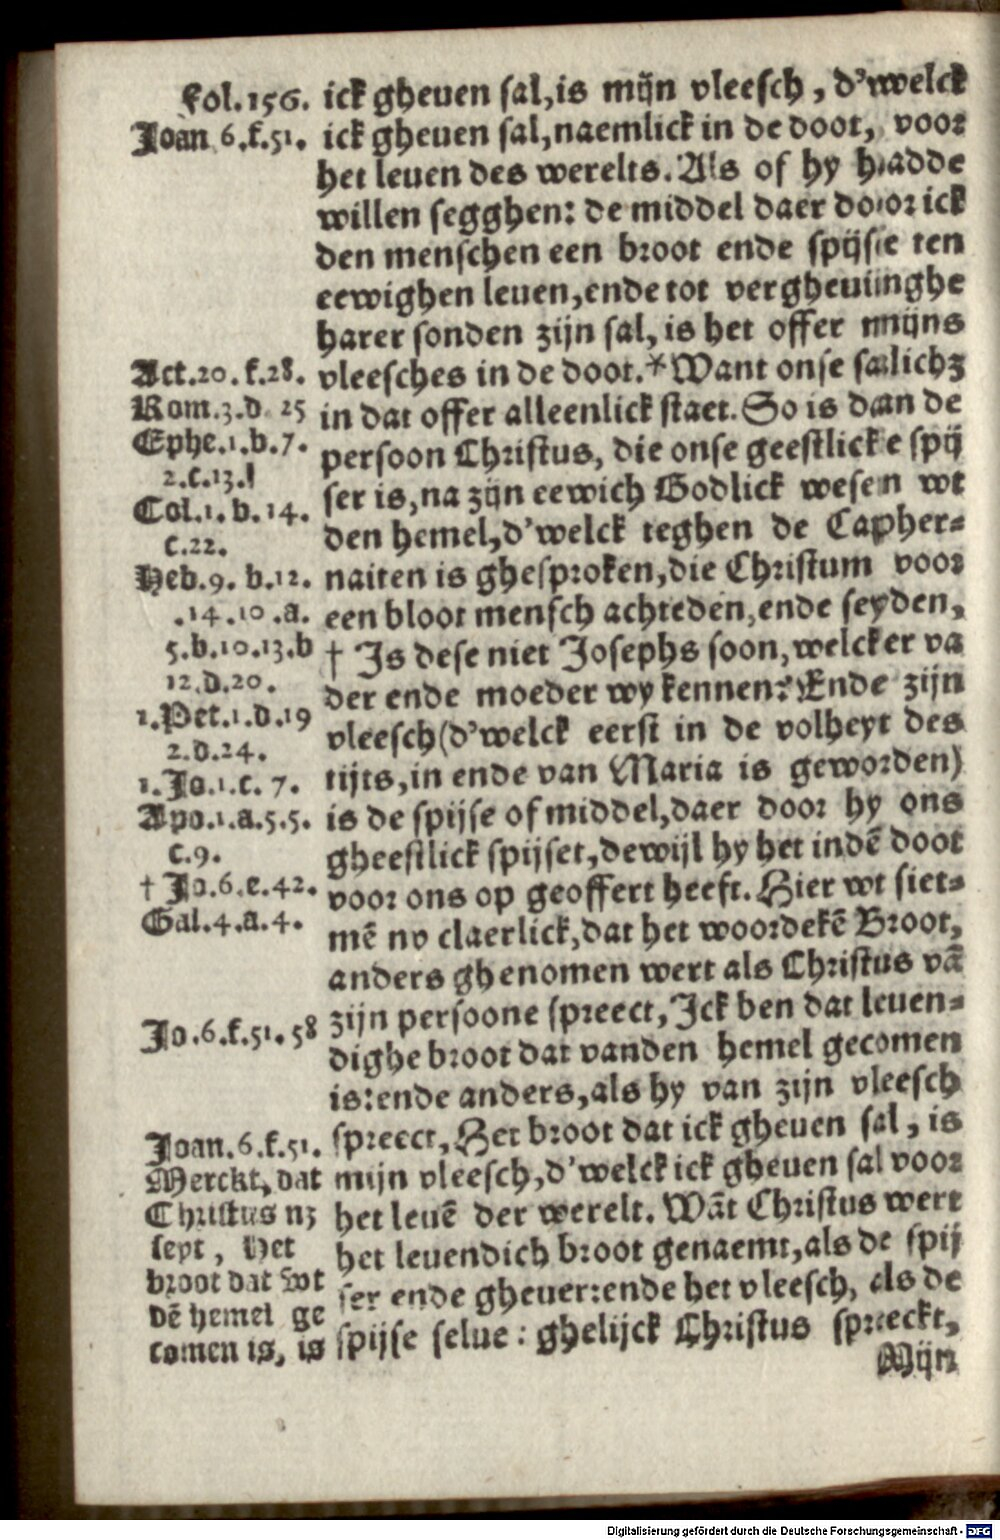 fol.156.
Joan 6.f.51.
Act.20.f.28.
Rom.3.d 25
Ephe.1.b.7.
2.c.13.
Col.1.b.14.
c.22.
Heb.9.b.12.
.14.10.a.
5.b.10.13.b
12.d.20.
1.Pet.1.d.19
2.d.24.
1.Jo.1.c.7.
Apo.1.a.5.5.
c.9.
† Jo.6.e.42.
Gal.4.a.4.
Jo.6.f.51.58
Joan.6.f.51.
Merckt, dat
Christus nz
seyt, Het
broot dat wt
dē hemel ge
comen is, is
ick gheuen sal,is mijn vleesch, d'welck
ick gheuen sal,naemlick in de doot, voor
het leuen des werelts. Als of hy hadde
willen segghen: de middel daer door ick
den menschen een broot ende spijse ten
eewighen leuen,ende tot vergheuinghe
harer sonden zijn sal, is het offer mijns
vleesches in de doot.* Want onse salichz
in dat offer alleenlick staet. So is dan de
persoon Christus, die onse geestlicke spij
ser is,na zijn eewich Godlick wesen wt
den hemel,d'welck teghen de Capher=
naiten is ghesproken,die Christum voor
een bloot mensch achteden,ende seyden,
† Is dese niet Josephs soon,welcker va
der ende moeder wy kennen? Ende zijn
vleesch(d'welck eerst in de volheyt des
tijts,in ende van Maria is geworden)
is de spijse of middel,daer door hy ons
gheestlick spijset,dewijl hy het indē doot
voor ons op geoffert heeft. Hier wt siet=
mē nv claerlick,dat het woordekē Broot,
anders ghenomen wert als Christus vā
zijn persoone spreect, Ick ben dat leuen=
dighe broot dat vanden hemel gecomen
is:ende anders,als hy van zijn vleesch
spreect, Het broot dat ick gheuen sal, is
mijn vleesch,d'welck ick gheuen sal voor
het leuē der werelt. Wāt Christus wert
het leuendich broot genaemt,als de spij
ser ende gheuer:ende het vleesch, als de
spijse selue: ghelijck Christus spreeckt,
Mijn
Digitalisierung gefördert durch die Deutsche Forschungsgemeinschaft - DFG